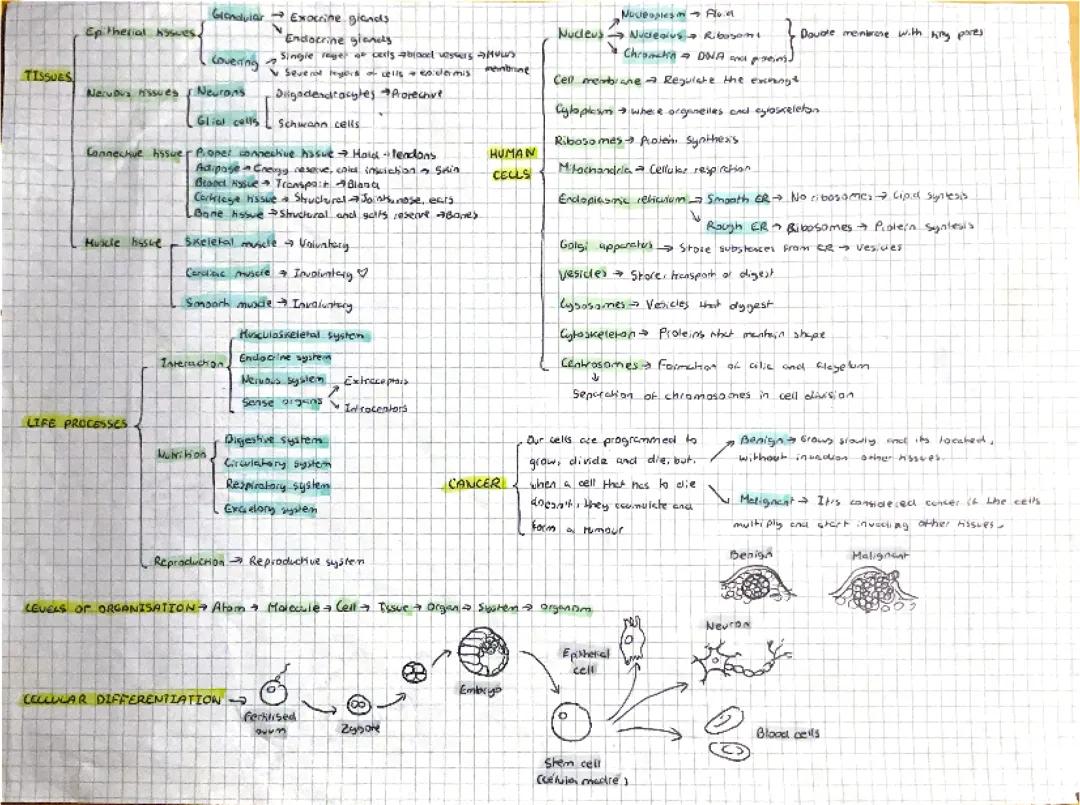 TISSUES
Epithelial tissues
Glandular → Exocrine glands
Endocrine glands
Covering → Single layer of cells → blood vessels → Mucus membrane
Several layers of cells → epidermis
Nervous tissues
Neurons
Glial cells
Oligodendrocytes → Protective
Schwann cells
Connective tissue
Proper connective tissue → Hold → Tendons
Adipose → Energy reserve, cold insulation → Skin
Blood tissue → Transport → Blood
Cartilage tissue → Structural → Joints, nose, ears
Bone tissue → Structural and salts reserve → Bones
Muscle tissue
Skeletal muscle → Voluntary
Cardiac muscle → Involuntary ♡
Smooth muscle → Involuntary
HUMAN CELLS
Nucleus
Nucleoplasm → Fluid
Nucleolus → Ribosomes
Chromatin → DNA and proteins
Double membrane with tiny pores
Cell membrane → Regulate the exchange
Cytoplasm → where organelles and cytoskeleton
Ribosomes → Protein synthesis
Mitochondria → Cellular respiration
Endoplasmic reticulum → Smooth ER → No ribosomes → Lipid syntesis
Rough ER → Ribosomes → Protein syntesis
Golgi apparatus → Store substances from ER → vesicles
Vesicles → Store, transport or digest
Lysosomes → Vesicles that dygest
Cytoskeleton → Proteins that mantain shape
Centrosomes → Formation of cilia and flagellum
↓
Separation of chromosomes in cell division
LIFE PROCESSES
Interaction
Musculoskeletal system
Endocrine system
Nervous system
Sense organs
Extraceptors
Intraceptors
Nutrition
Digestive system
Circulatory system
Respiratory system
Excretory system
Reproduction → Reproductive system
CANCER
Our cells are programmed to
grow, divide and die, but,
when a cell that has to die
doesn't, they accumulate and
form a tumour
Benign → Grows slowly and its located,
without invading other tissues.
Malignant → It is considered cancer if the cells
multiply and start invading other tissues.
Benign
Malignant
LEVELS OF ORGANISATION → Atom → Molecule → Cell → Tissue → Organ → System → Organism
CELLULAR DIFFERENTIATION →
Fertilised
ovum
Zygote
Embryo
Stem cell
(célula madre)
Epithelial
cell
Neuron
Blood cells